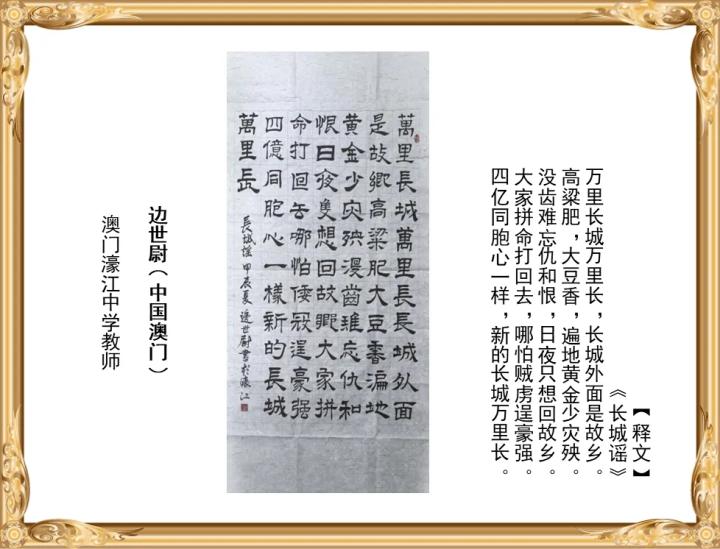 【释文】
《长城谣》
万里长城万里长，长城外面是故乡。
高粱肥，大豆香，遍地黄金少灾殃。
没齿难忘仇和恨，日夜只想回故乡。
大家拼命打回去，哪怕贼虏逞豪强。
四亿同胞心一样，新的长城万里长。
萬里長城萬里長長城外面
是故鄉高粱肥大豆香遍地
黃金少灾殃沒齒難忘仇和
恨日夜隻想回故鄉大家拼
命打回去哪怕倭寇逞豪强
四億同胞心一樣新的長城
萬里長
長城謠 甲辰夏 邊世尉書於濠江
边世尉（中国澳门）
澳门濠江中学教师